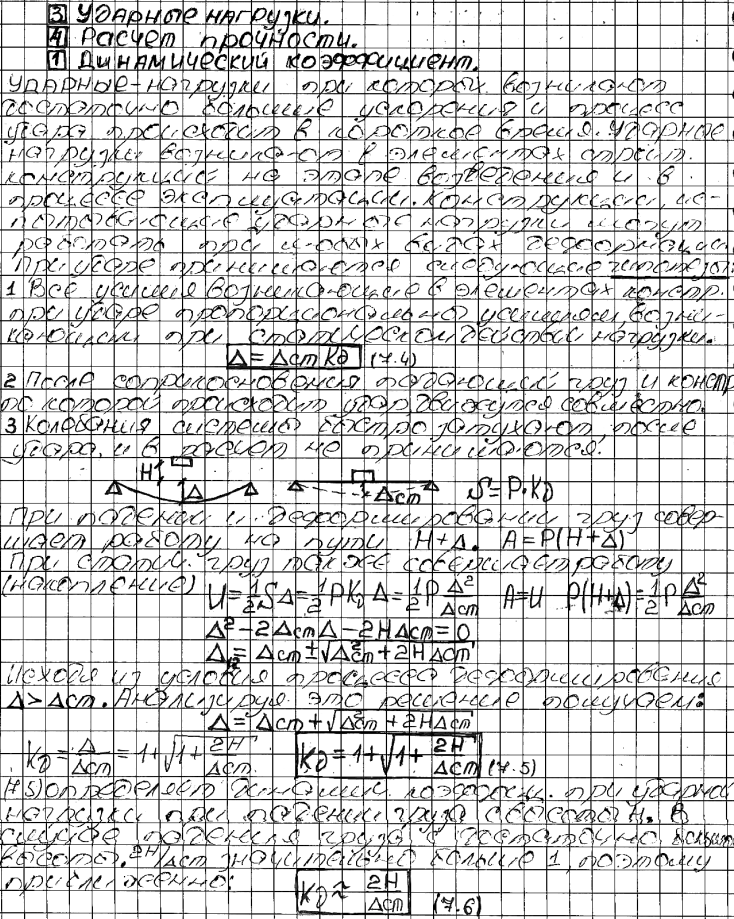 3 Ударные нагрузки.
4 Расчет прочности.
1 Динамический коэффициент.
Ударные-нагрузки при которых возникают
достаточно большие ускорения и процесс
удара происходит в короткое время. Ударные
нагрузки возникают в элементах строит.
конструкций на этапе возведения и в
процессе эксплуатации. Конструкции, ис-
пытывающие ударные нагрузки могут
работать при любых видах деформации.
При ударе принимаются следующие гипотезы:
1 Все усилия возникающие в элементах констр.
при ударе пропорциональны усилиям, возни-
кающим при статическом действии нагрузки.
Δ = Δст Kд (7.4)
2 После соприкосновения падающий груз и констр
по которой происходит удар движутся совместно.
3 Колебания системы быстро затухают после
удара и в расчет не принимаются.
H Δ Δст S=P·Kд
При падении и деформировании груз совер-
шает работу на пути H+Δ. A=P(H+Δ)
При статич. груз также совершает работу
(накопление) U=1/2SΔ=1/2PKд Δ=1/2P Δ²/Δст A=U P(H+Δ)=1/2P Δ²/Δст
Δ²-2ΔстΔ-2HΔст=0
Δ₁,₂= Δст±√Δ²ст+2HΔст
Исходя из условия процесса деформирования
Δ>Δст. Анализируя это решение получаем:
Δ=Δст+√Δ²ст+2HΔст
Kд=Δ/Δст=1+√1+2H/Δст Kд=1+√1+2H/Δст (7.5)
(7.5) определяет динамич. коэффиц. при ударной
нагрузки при падении груза с высоты H. В
случае падения груза с достаточно больш
высоты. 2H/Δст значительно больше 1, поэтому
приближенно:
Kд≈ 2H/Δст (7.6)